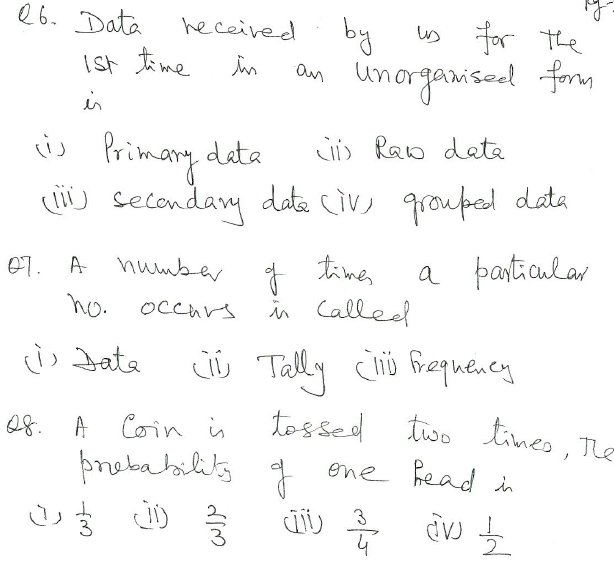 Q6. Data received by us for the
1st time in an unorganised form
is
(i) Primary data (ii) Raw data
(iii) secondary data (iv) grouped data
Q7. A number of times a particular
no. occurs is called
(i) Data (ii) Tally (iii) frequency
Q8. A Coin is tossed two times, The
probability of one head is
(i) 1/3 (ii) 2/3 (iii) 3/4 (iv) 1/2